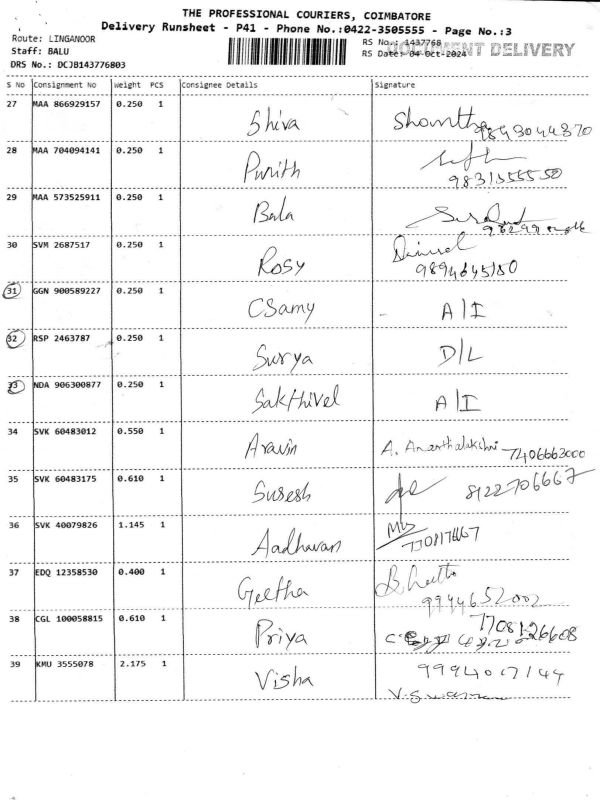 THE PROFESSIONAL COURIERS, COIMBATORE
Delivery Runsheet - P41 - Phone No.:0422-3505555 - Page No.:3
Route: LINGANOOR RS No.: 1437768
Staff: BALU RS Date: 04-Oct-2024 DOCUMENT DELIVERY
DRS No.: DCJB143776803
S No Consignment No Weight PCS Consignee Details Signature
27 MAA 866929157 0.250 1 Shiva Shantha 9843044370
28 MAA 704094141 0.250 1 Punith 9831555550
29 MAA 573525911 0.250 1 Bala
30 SVM 2687517 0.250 1 Rosy 9894645150
31 GGN 900589227 0.250 1 CSamy A/I
32 RSP 2463787 0.250 1 Surya D/L
33 NDA 906300877 0.250 1 Sakthivel A/I
34 SVK 60483012 0.550 1 Aravin A. Ananthalakshmi 7406663000
35 SVK 60483175 0.610 1 Suresh 8122706667
36 SVK 40079826 1.145 1 Aadhavan
37 EDQ 12358530 0.400 1 Geetha 9944652002
38 CGL 100058815 0.610 1 Priya 7708126608
39 KMU 3555078 2.175 1 Visha